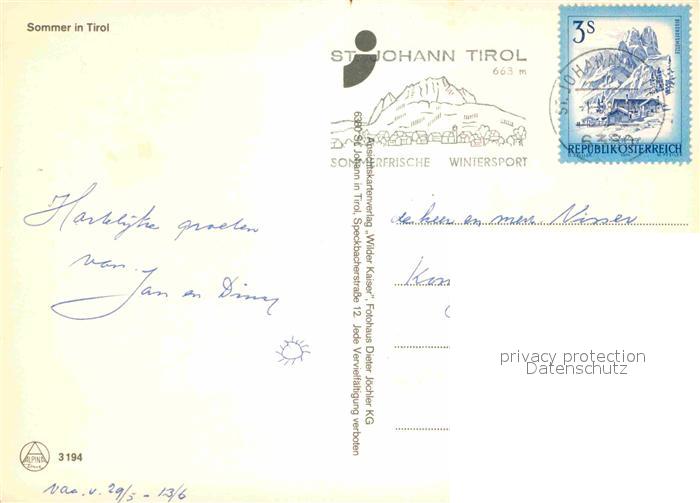 Sommer in Tirol
ST. JOHANN TIROL
663 m
SOMMERFRISCHE WINTERSPORT
3S
REPUBLIK ÖSTERREICH
ST. JOHANN
6380
Hartelijke groeten
van
Jan en
de heer en mevr. Visser
Ansichtskartenverlag „Wilder Kaiser", Fotohaus Dieter Jöchler KG
6380 St. Johann in Tirol, Speckbacherstraße 12 Jede Vervielfältigung verboten
privacy protection
Datenschutz
ALPINA
3194
vac. v. 29/5 - 13/6